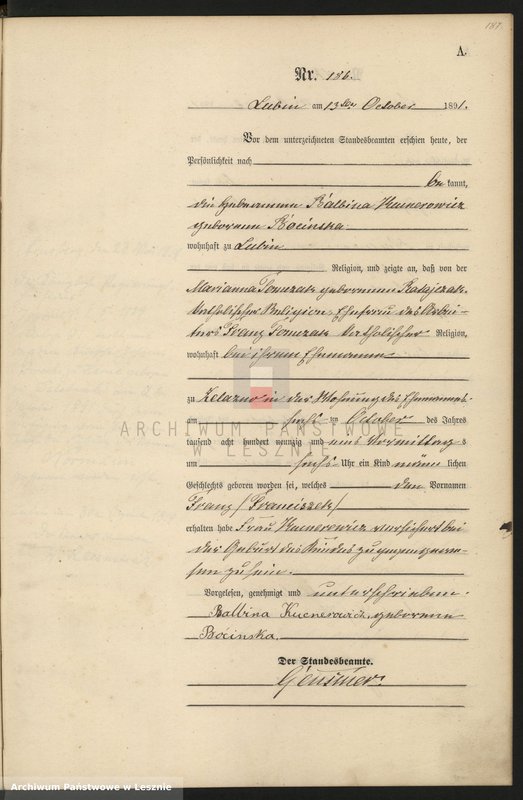 187.
A.
Nr. 186.
Lubin am 13ten October 1891.
Vor dem unterzeichneten Standesbeamten erschien heute, der
Persönlichkeit nach
bekannt,
die Hebamme Balbina Kucnerowicz
geborene Bócinska
wohnhaft zu Lubin
Religion, und zeigte an, daß von der
Marianna Tomczak geborenen Ratajczak
katholischer Religion, Ehefrau des Arbei-
ters Franz Tomczak katholischer Religion,
wohnhaft bei ihrem Ehemanne
zu Zelazno in der Wohnung des Ehemannes
am sechsten October des Jahres
tausend acht hundert neunzig und eins Vormittags
um sechs Uhr ein Kind männlichen
Geschlechts geboren worden sei, welches den Vornamen
Franz /Franciszek/
erhalten habe Frau Kucnerowicz versichert bei
der Geburt des Kindes zugegen gewe-
sen zu sein.
Vorgelesen, genehmigt und unterschrieben.
Balbina Kucnerowicz geborene
Bócinska.
Der Standesbeamte.
ARCHIWUM PAŃSTWOWE
W LESZNIE
Archiwum Państwowe w Lesznie